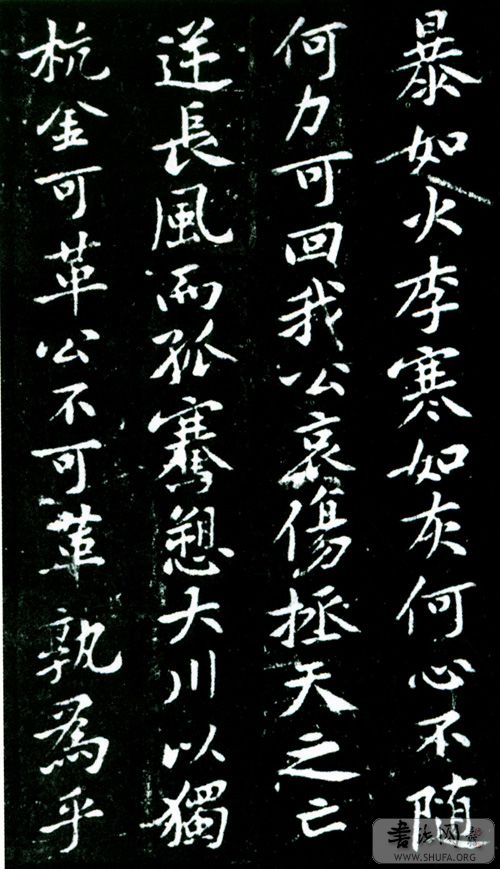 暴如火李寒如灰何心不隨
何力可回我公哀傷拯天之亡
逆長風而孤騫愬大川以獨
杭金可革公不可革孰爲乎
書法网
WWW.SHUFA.ORG